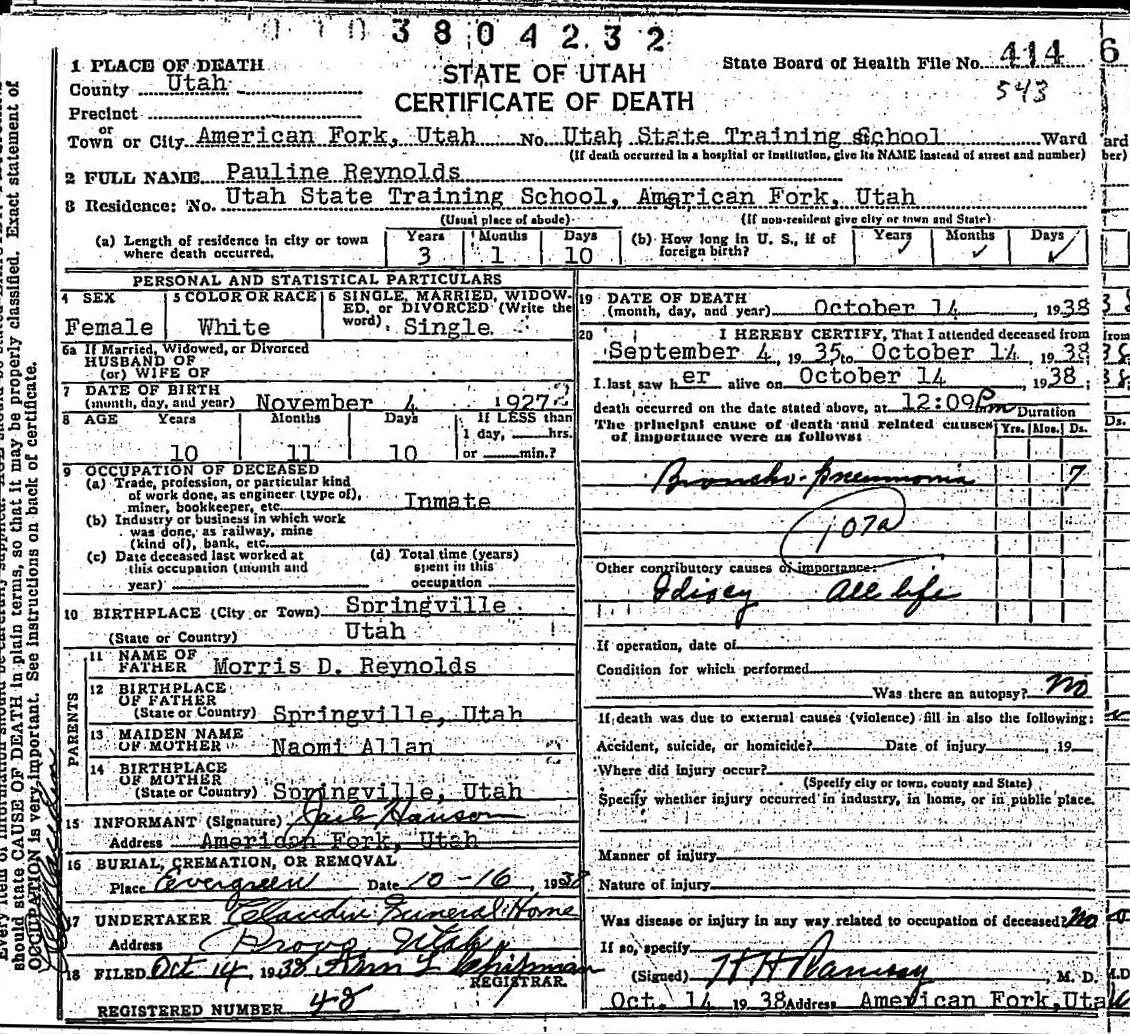 3804232
1 PLACE OF DEATH
County Utah
Precinct
or
Town or City American Fork, Utah No. Utah State Training School Ward
(If death occurred in a hospital or institution, give its NAME instead of street and number)
STATE OF UTAH
CERTIFICATE OF DEATH
State Board of Health File No. 414
543
2 FULL NAME Pauline Reynolds
3 Residence: No. Utah State Training School, American Fork, Utah
(Usual place of abode) (If non-resident give city or town and State)
(a) Length of residence in city or town where death occurred. Years 3 Months 1 Days 10
(b) How long in U. S., if of foreign birth? Years ✓ Months ✓ Days ✓
PERSONAL AND STATISTICAL PARTICULARS
4 SEX Female
5 COLOR OR RACE White
6 SINGLE, MARRIED, WIDOWED, or DIVORCED (Write the word) Single
6a If Married, Widowed, or Divorced
HUSBAND OF
(or) WIFE OF
7 DATE OF BIRTH
(month, day, and year) November 4 1927
8 AGE Years 10 Months 11 Days 10 If LESS than 1 day, hrs. or min.?
9 OCCUPATION OF DECEASED
(a) Trade, profession, or particular kind of work done, as engineer (type of), miner, bookkeeper, etc. Inmate
(b) Industry or business in which work was done, as railway, mine (kind of), bank, etc.
(c) Date deceased last worked at this occupation (month and year)
(d) Total time (years) spent in this occupation
10 BIRTHPLACE (City or Town) Springville
(State or Country) Utah
PARENTS
11 NAME OF FATHER Morris D. Reynolds
12 BIRTHPLACE OF FATHER
(State or Country) Springville, Utah
13 MAIDEN NAME OF MOTHER Naomi Allan
14 BIRTHPLACE OF MOTHER
(State or Country) Springville, Utah
15 INFORMANT (Signature) Jack Hanson
Address American Fork, Utah
16 BURIAL, CREMATION, OR REMOVAL
Place Evergreen Date 10-16, 1938
17 UNDERTAKER Claudin Funeral Home
Address Provo, Utah
18 FILED Oct 14, 1938 Ann L Chipman
REGISTRAR.
REGISTERED NUMBER 48
19 DATE OF DEATH
(month, day, and year) October 14, 1938
20 I HEREBY CERTIFY, That I attended deceased from
September 4, 1935 to October 14, 1938
I last saw her alive on October 14, 1938;
death occurred on the date stated above, at 12:09 Pm
The principal cause of death and related causes of importance were as follows: Duration Yrs. Mos. Ds.
Broncho-pneumonia 7
107a
Other contributory causes of importance:
Idiocy All life
If operation, date of
Condition for which performed
Was there an autopsy? No
If death was due to external causes (violence) fill in also the following:
Accident, suicide, or homicide? Date of injury, 19
Where did injury occur?
(Specify city or town, county and State)
Specify whether injury occurred in industry, in home, or in public place.
Manner of injury
Nature of injury
Was disease or injury in any way related to occupation of deceased? No
If so, specify
(Signed) H H Ramsay, M. D.
Oct. 14 1938 Address American Fork, Utah
should state CAUSE OF DEATH in plain terms, so that it may be properly classified. Exact statement of
OCCUPATION is very important. See instructions on back of certificate.